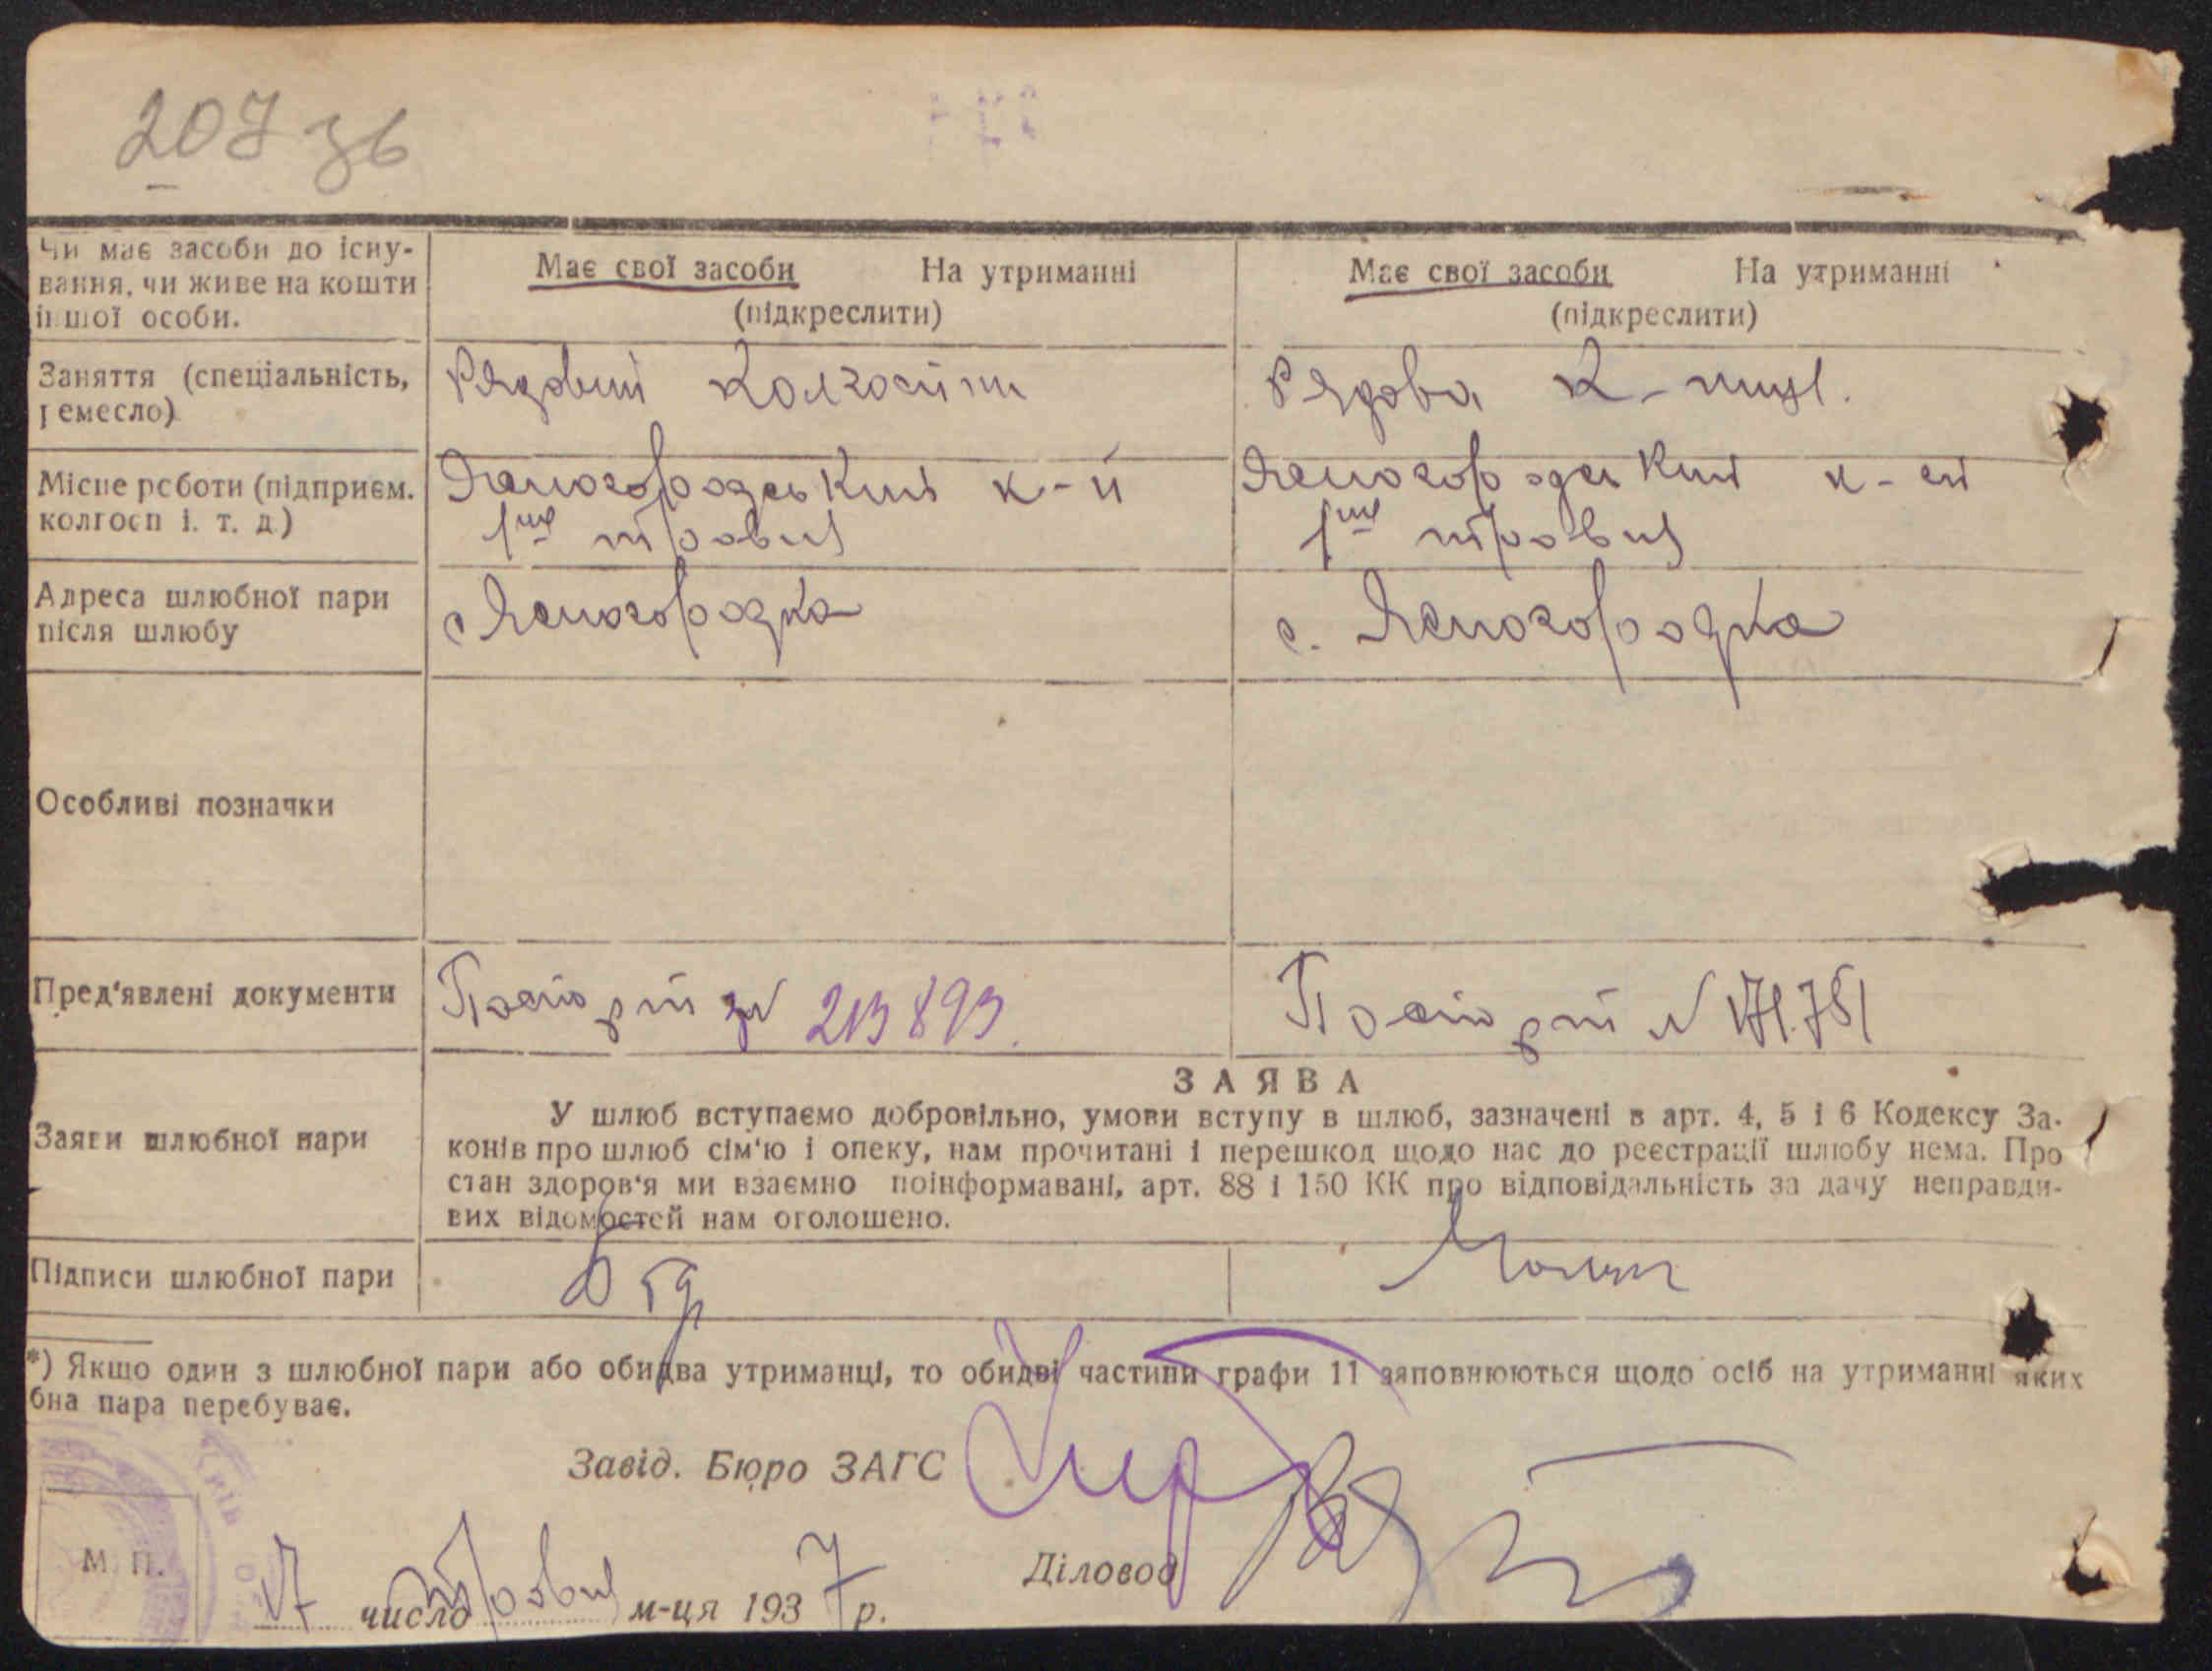 207 зв
Чи має засоби до існу-
вання, чи живе на кошти
іншої особи.
Має свої засоби На утриманні
(підкреслити)
Має свої засоби На утриманні
(підкреслити)
Заняття (спеціальність,
ремесло)
Рядовий Колгоспн
Рядова К-
Місце роботи (підприєм.
колгосп і. т. д.)
Ясногородський к-п
1ше травня
Ясногородський к-сп
1ше травня
Адреса шлюбної пари
після шлюбу
с Ясногородка
с. Ясногородка
Особливі позначки
Пред'явлені документи
Паспорт № 213893.
Паспорт № 171.751
Заяви шлюбної пари
ЗАЯВА
У шлюб вступаємо добровільно, умови вступу в шлюб, зазначені в арт. 4, 5 і 6 Кодексу За-
конів про шлюб сім'ю і опеку, нам прочитані і перешкод щодо нас до реєстрації шлюбу нема. Про
стан здоров'я ми взаємно поінформавані, арт. 88 і 150 КК про відповідальність за дачу неправди-
вих відомостей нам оголошено.
Підписи шлюбної пари
*) Якщо один з шлюбної пари або обидва утриманці, то обидві частини графи 11 заповнюються щодо осіб на утриманні яких
бна пара перебуває.
Завід. Бюро ЗАГС
М. П.
Діловод
17 число травня м-ця 1937 р.